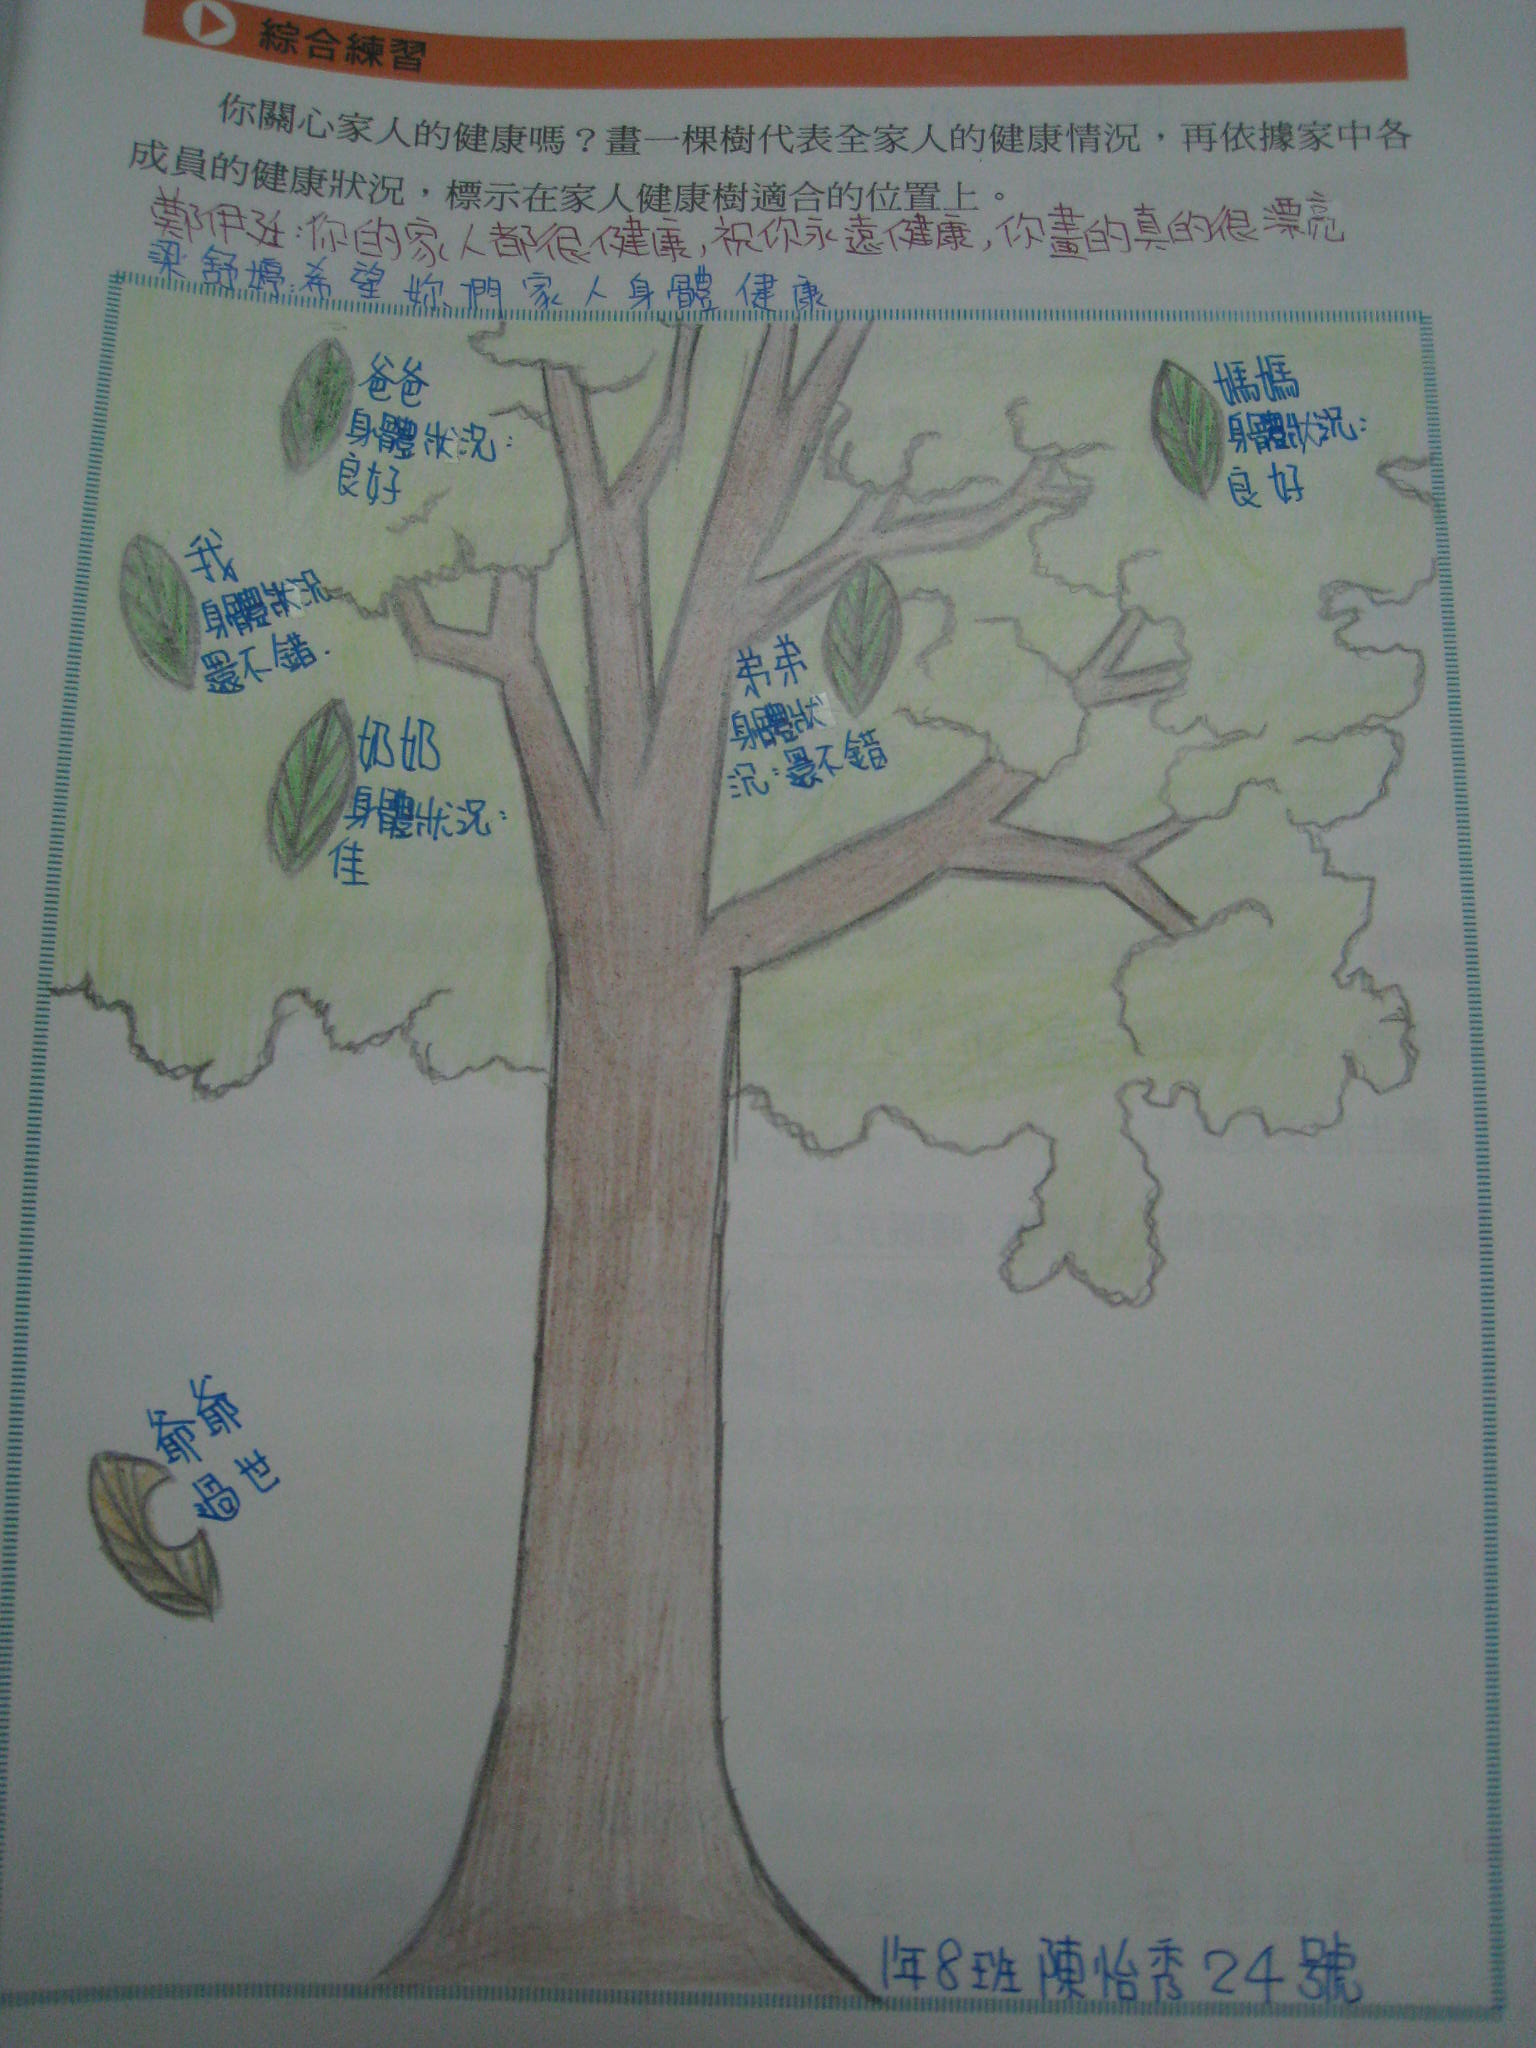 綜合練習
你關心家人的健康嗎？畫一棵樹代表全家人的健康情況，再依據家中各
成員的健康狀況，標示在家人健康樹適合的位置上。
鄭伊廷:你的家人都很健康,祝你永遠健康,你畫的真的很漂亮
梁舒婷:希望妳們家人身體健康
爸爸
身體狀況:
良好
媽媽
身體狀況:
良好
我
身體狀況
還不錯.
弟弟
身體狀
況:還不錯
奶奶
身體狀況:
佳
爺爺
過世
1年8班陳怡秀24號